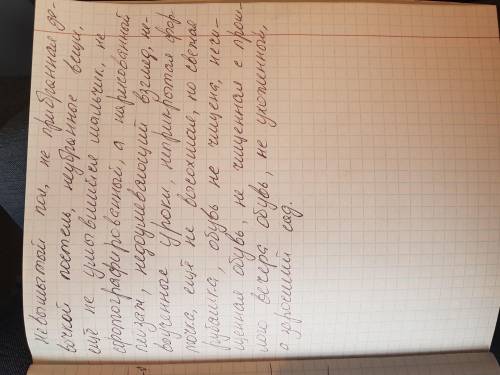 Невымытой пол, не прибранная де-
вочкой постель, неубранное вещи,
ещё не умывшийся мальчик, не
сфотографированный, а нарисованный
пейзаж, недоумевающий взгляд, не-
выученные уроки, неприкрытая фор
почка, ещё не высохшая, но свежая
рубашка, обувь не чищена, нечи-
щенная обувь, не чищенная с прош-
лого вечера обувь, не ухоженный,
а заросший сад.